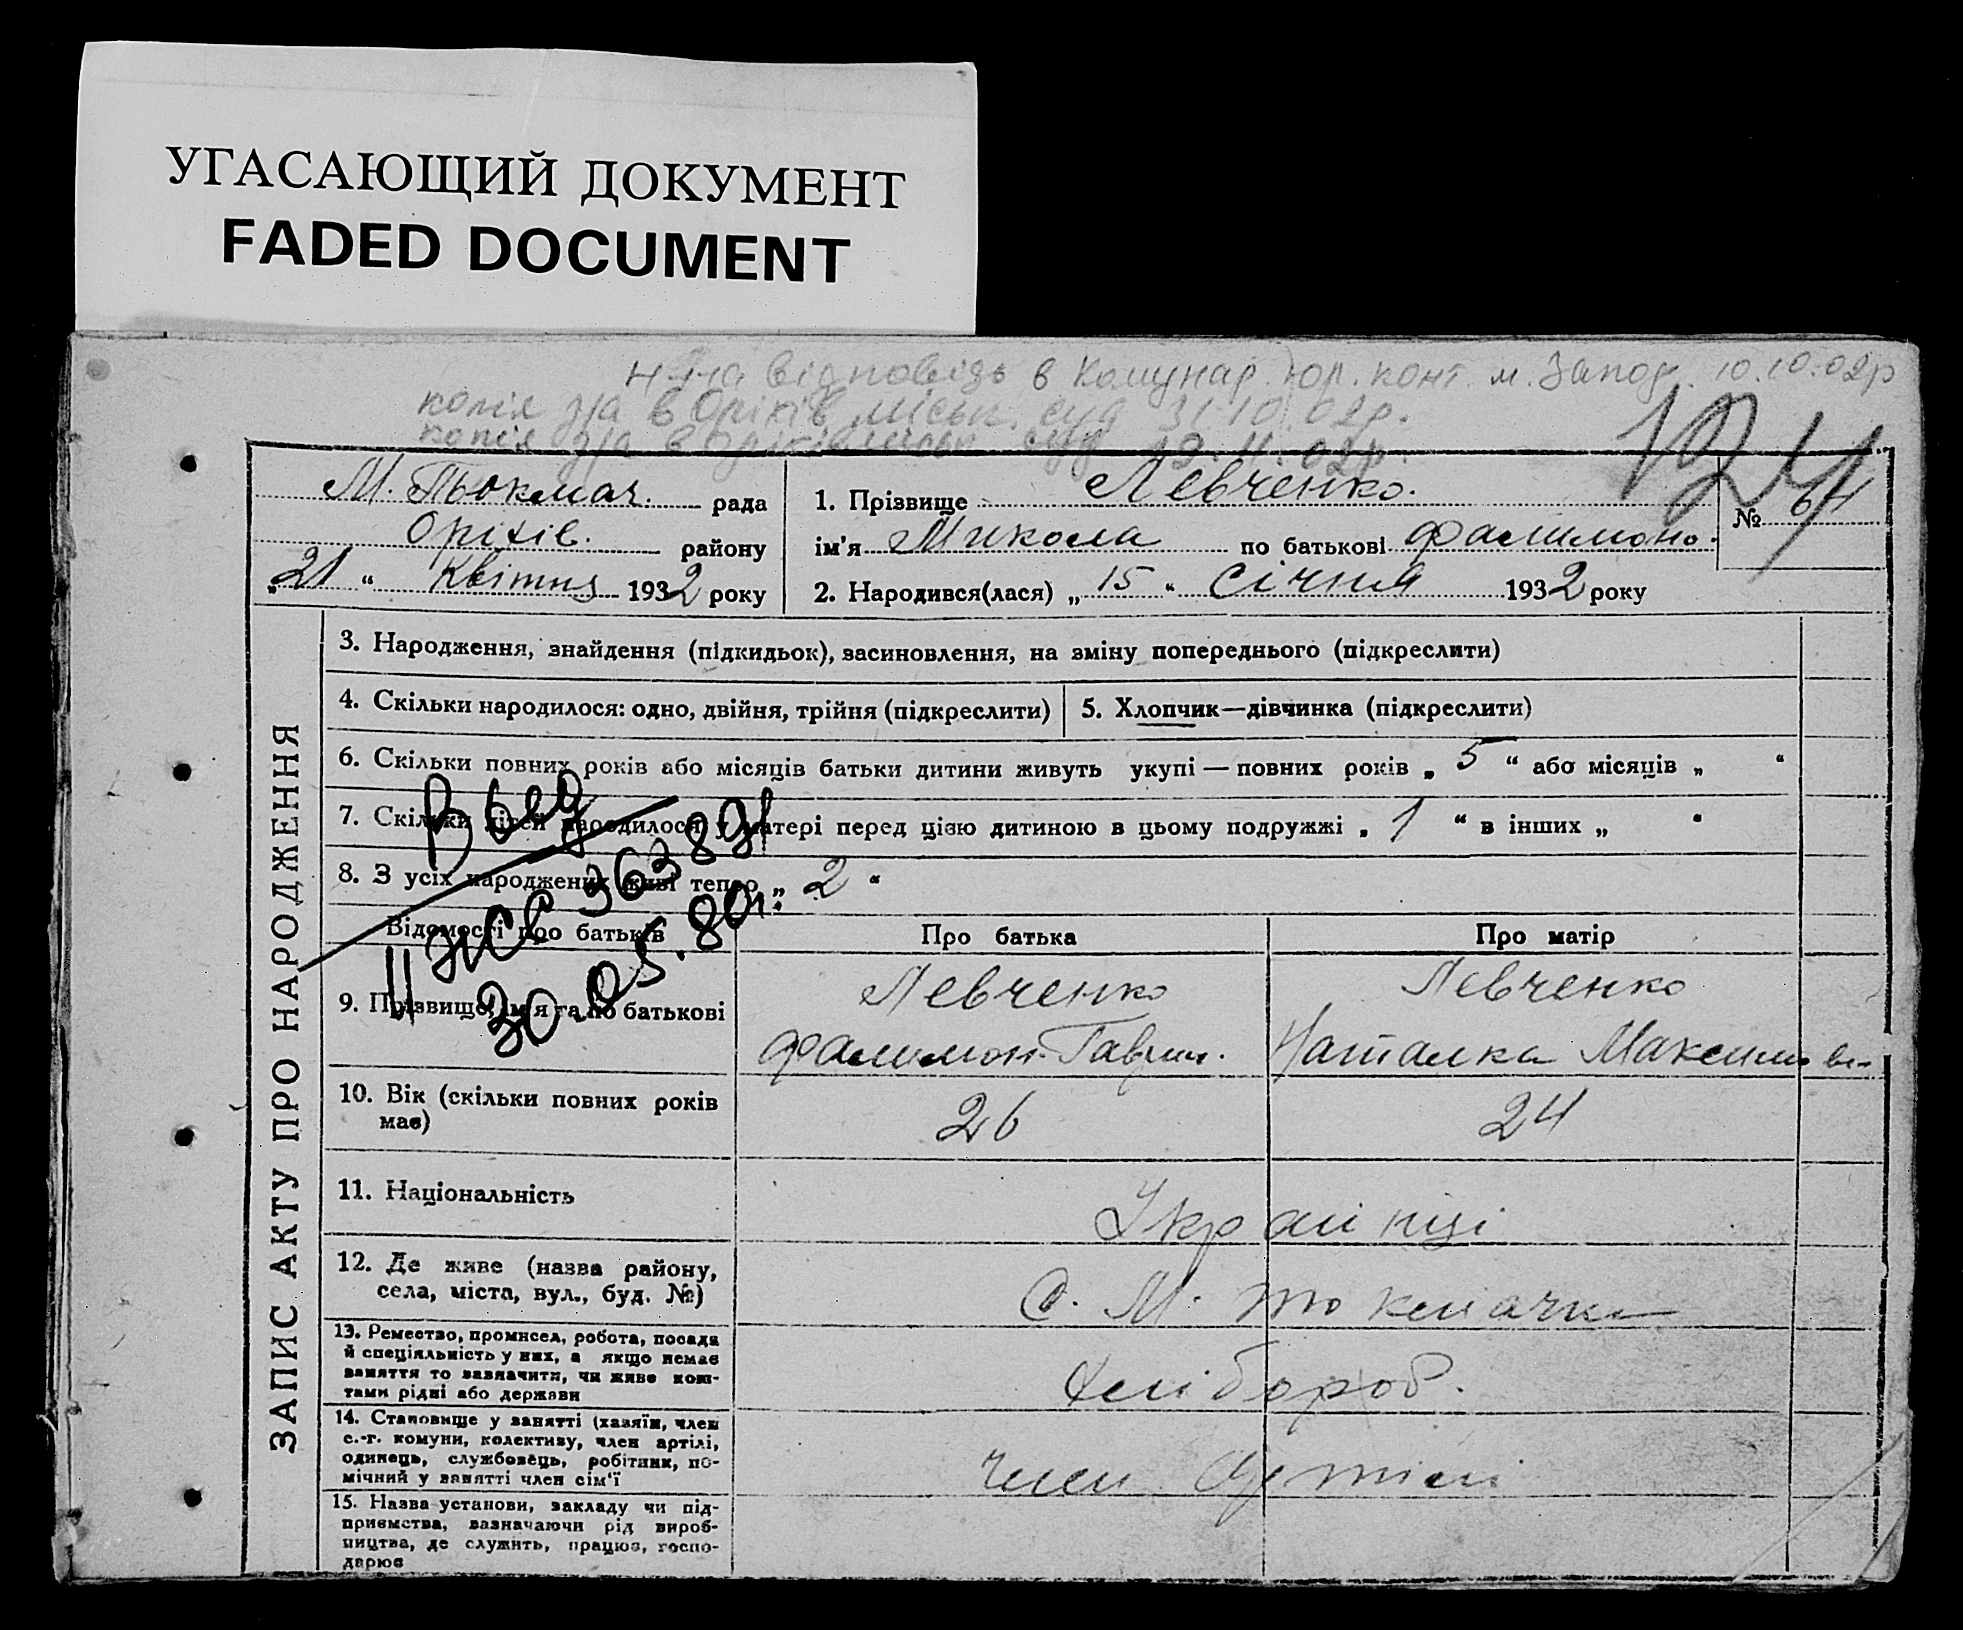 УГАСАЮЩИЙ ДОКУМЕНТ
FADED DOCUMENT
на відповідь в Комунар. юр. конт. м. Запор. 10.10.02р
копія з/а в Оріхів міськ. суд 31.10.02р.
копія з/а в Оріхів міськ суд 19.11.02р.
124
М. Тьокмач. рада
Оріхів. району
„21“ Квітня 1932 року
1. Прізвище Левченко.
№ 64
ім'я Микола по батькові Фалимоно.
2. Народився(лася) „15“ Січня 1932 року
ЗАПИС АКТУ ПРО НАРОДЖЕННЯ
3. Народження, знайдення (підкидьок), засиновлення, на зміну попереднього (підкреслити)
4. Скільки народилося: одно, двійня, трійня (підкреслити)
5. Хлопчик—дівчинка (підкреслити)
6. Скільки повних років або місяців батьки дитини живуть укупі — повних років „5“ або місяців „ “
7. Скільки дітей народилося у матері перед цією дитиною в цьому подружжі „1“ в інших „ “
8. З усіх народжених живі тепер „2“
Выд
30.05.80г.
Відомості про батьків
Про батька
Про матір
9. Прізвище, ім'я та по батькові
Левченко
Фалимон Гаврил.
Левченко
Наталка Максимов-
10. Вік (скільки повних років
має)
26
24
11. Національність
Українці
12. Де живе (назва району,
села, міста, вул., буд. №)
С. М. Токмачка
13. Ремество, промисел, робота, посада
й спеціяльність у них, а якщо немає
заняття то зазначити, чи живе кош-
тами рідні або держави
Хлібороб.
14. Становище у занятті (хазяїн, член
с.-г. комуни, колективу, член артілі,
одинець, службовець, робітник, по-
мічний у занятті член сім'ї
член Артілі
15. Назва установи, закладу чи під-
приємства, зазначаючи рід вироб-
ництва, де служить, працює, госпо-
дарює